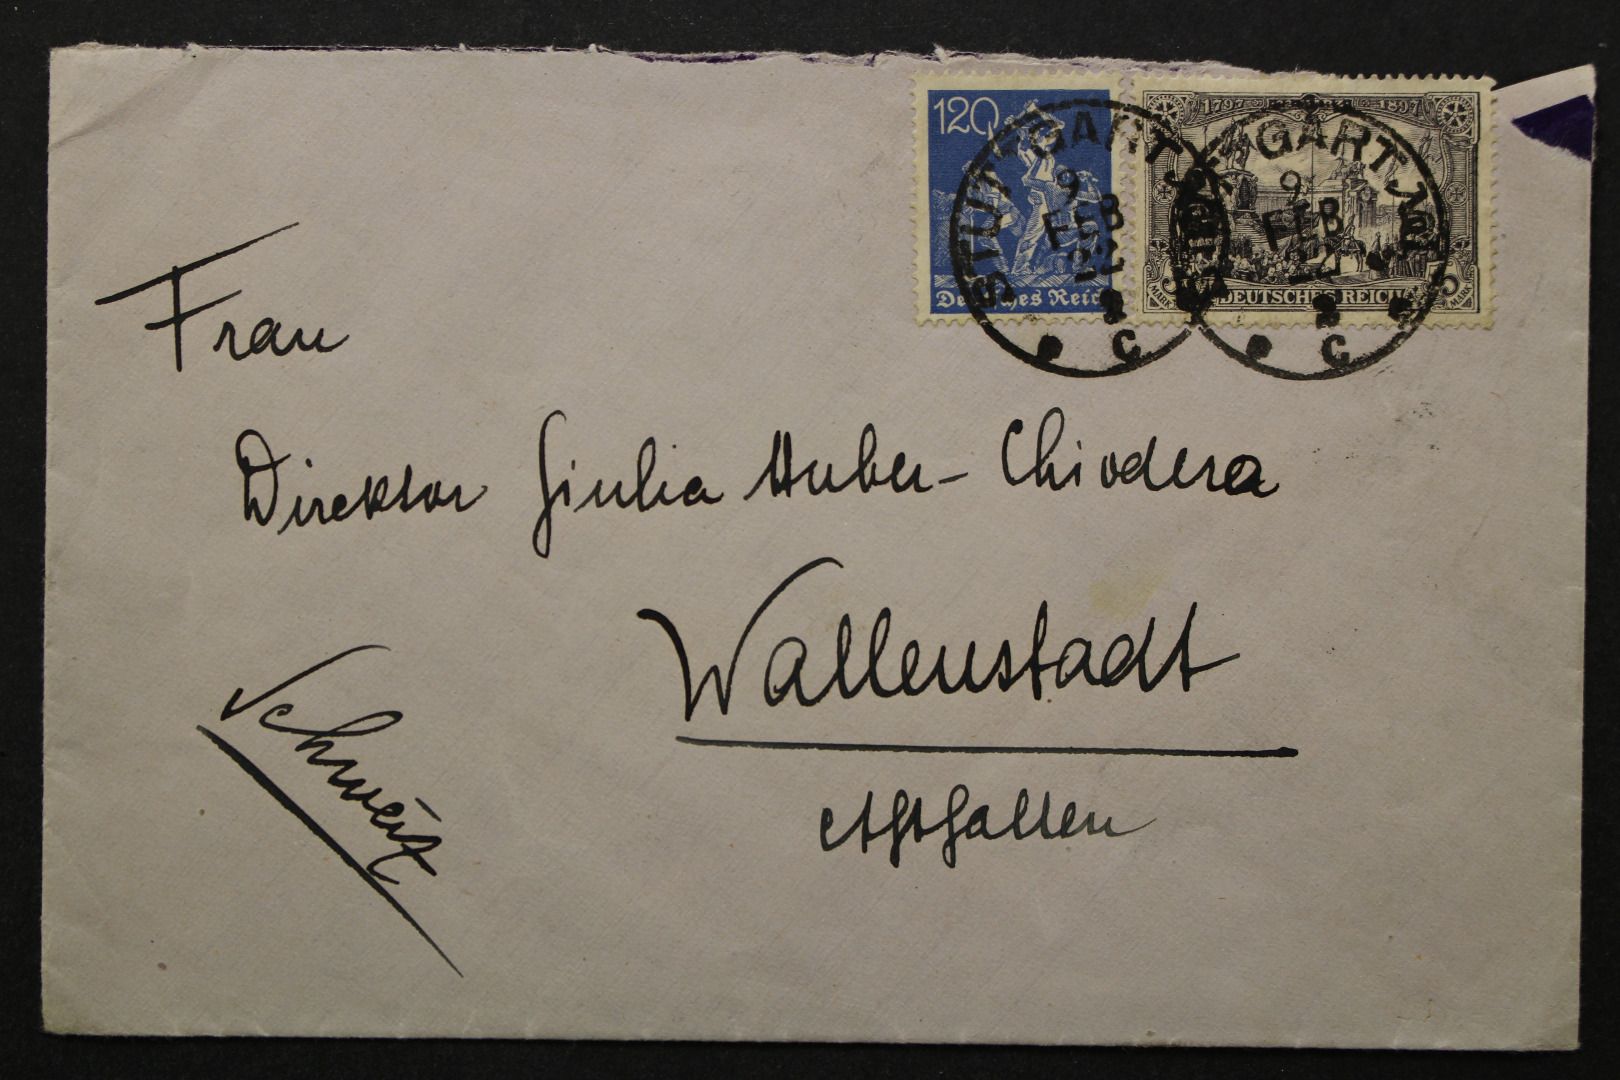 120
Deutsches Reich
1797 1897
DEUTSCHES REICH
MARK 3 MARK
STUTTGART
9
FEB
22
C
STUTTGART
9
FEB
22
C
Frau
Direktor Giulia Huber-Chiodera
Wallenstadt
Schweiz